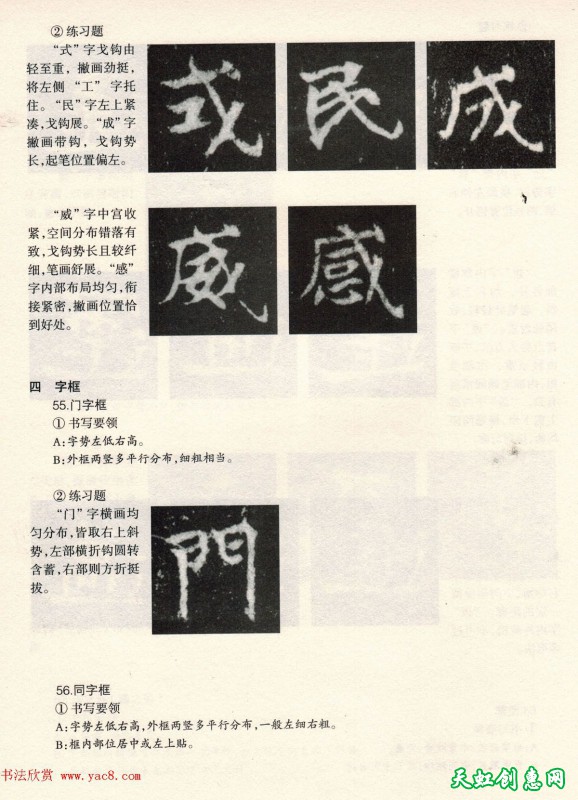 ②练习题
“式”字戈钩由
轻至重，撇画劲挺，
将左侧“工”字托
住。“民”字左上紧
凑，戈钩展。“成”字
撇画带钩，戈钩势
长，起笔位置偏左。
式 民 成
“威”字中宫收
紧，空间分布错落有
致，戈钩势长且较纤
细，笔画舒展。“感”
字内部布局均匀，衔
接紧密，撇画位置恰
到好处。
威 感
四 字框
55.门字框
①书写要领
A：字势左低右高。
B：外框两竖多平行分布，细粗相当。
②练习题
“门”字横画均
匀分布，皆取右上斜
势，左部横折钩圆转
含蓄，右部则方折挺
拔。
門
56.同字框
①书写要领
A：字势左低右高，外框两竖多平行分布，一般左细右粗。
B：框内部位居中或左上贴。
书法欣赏 www.yac8.com
天虹创惠网